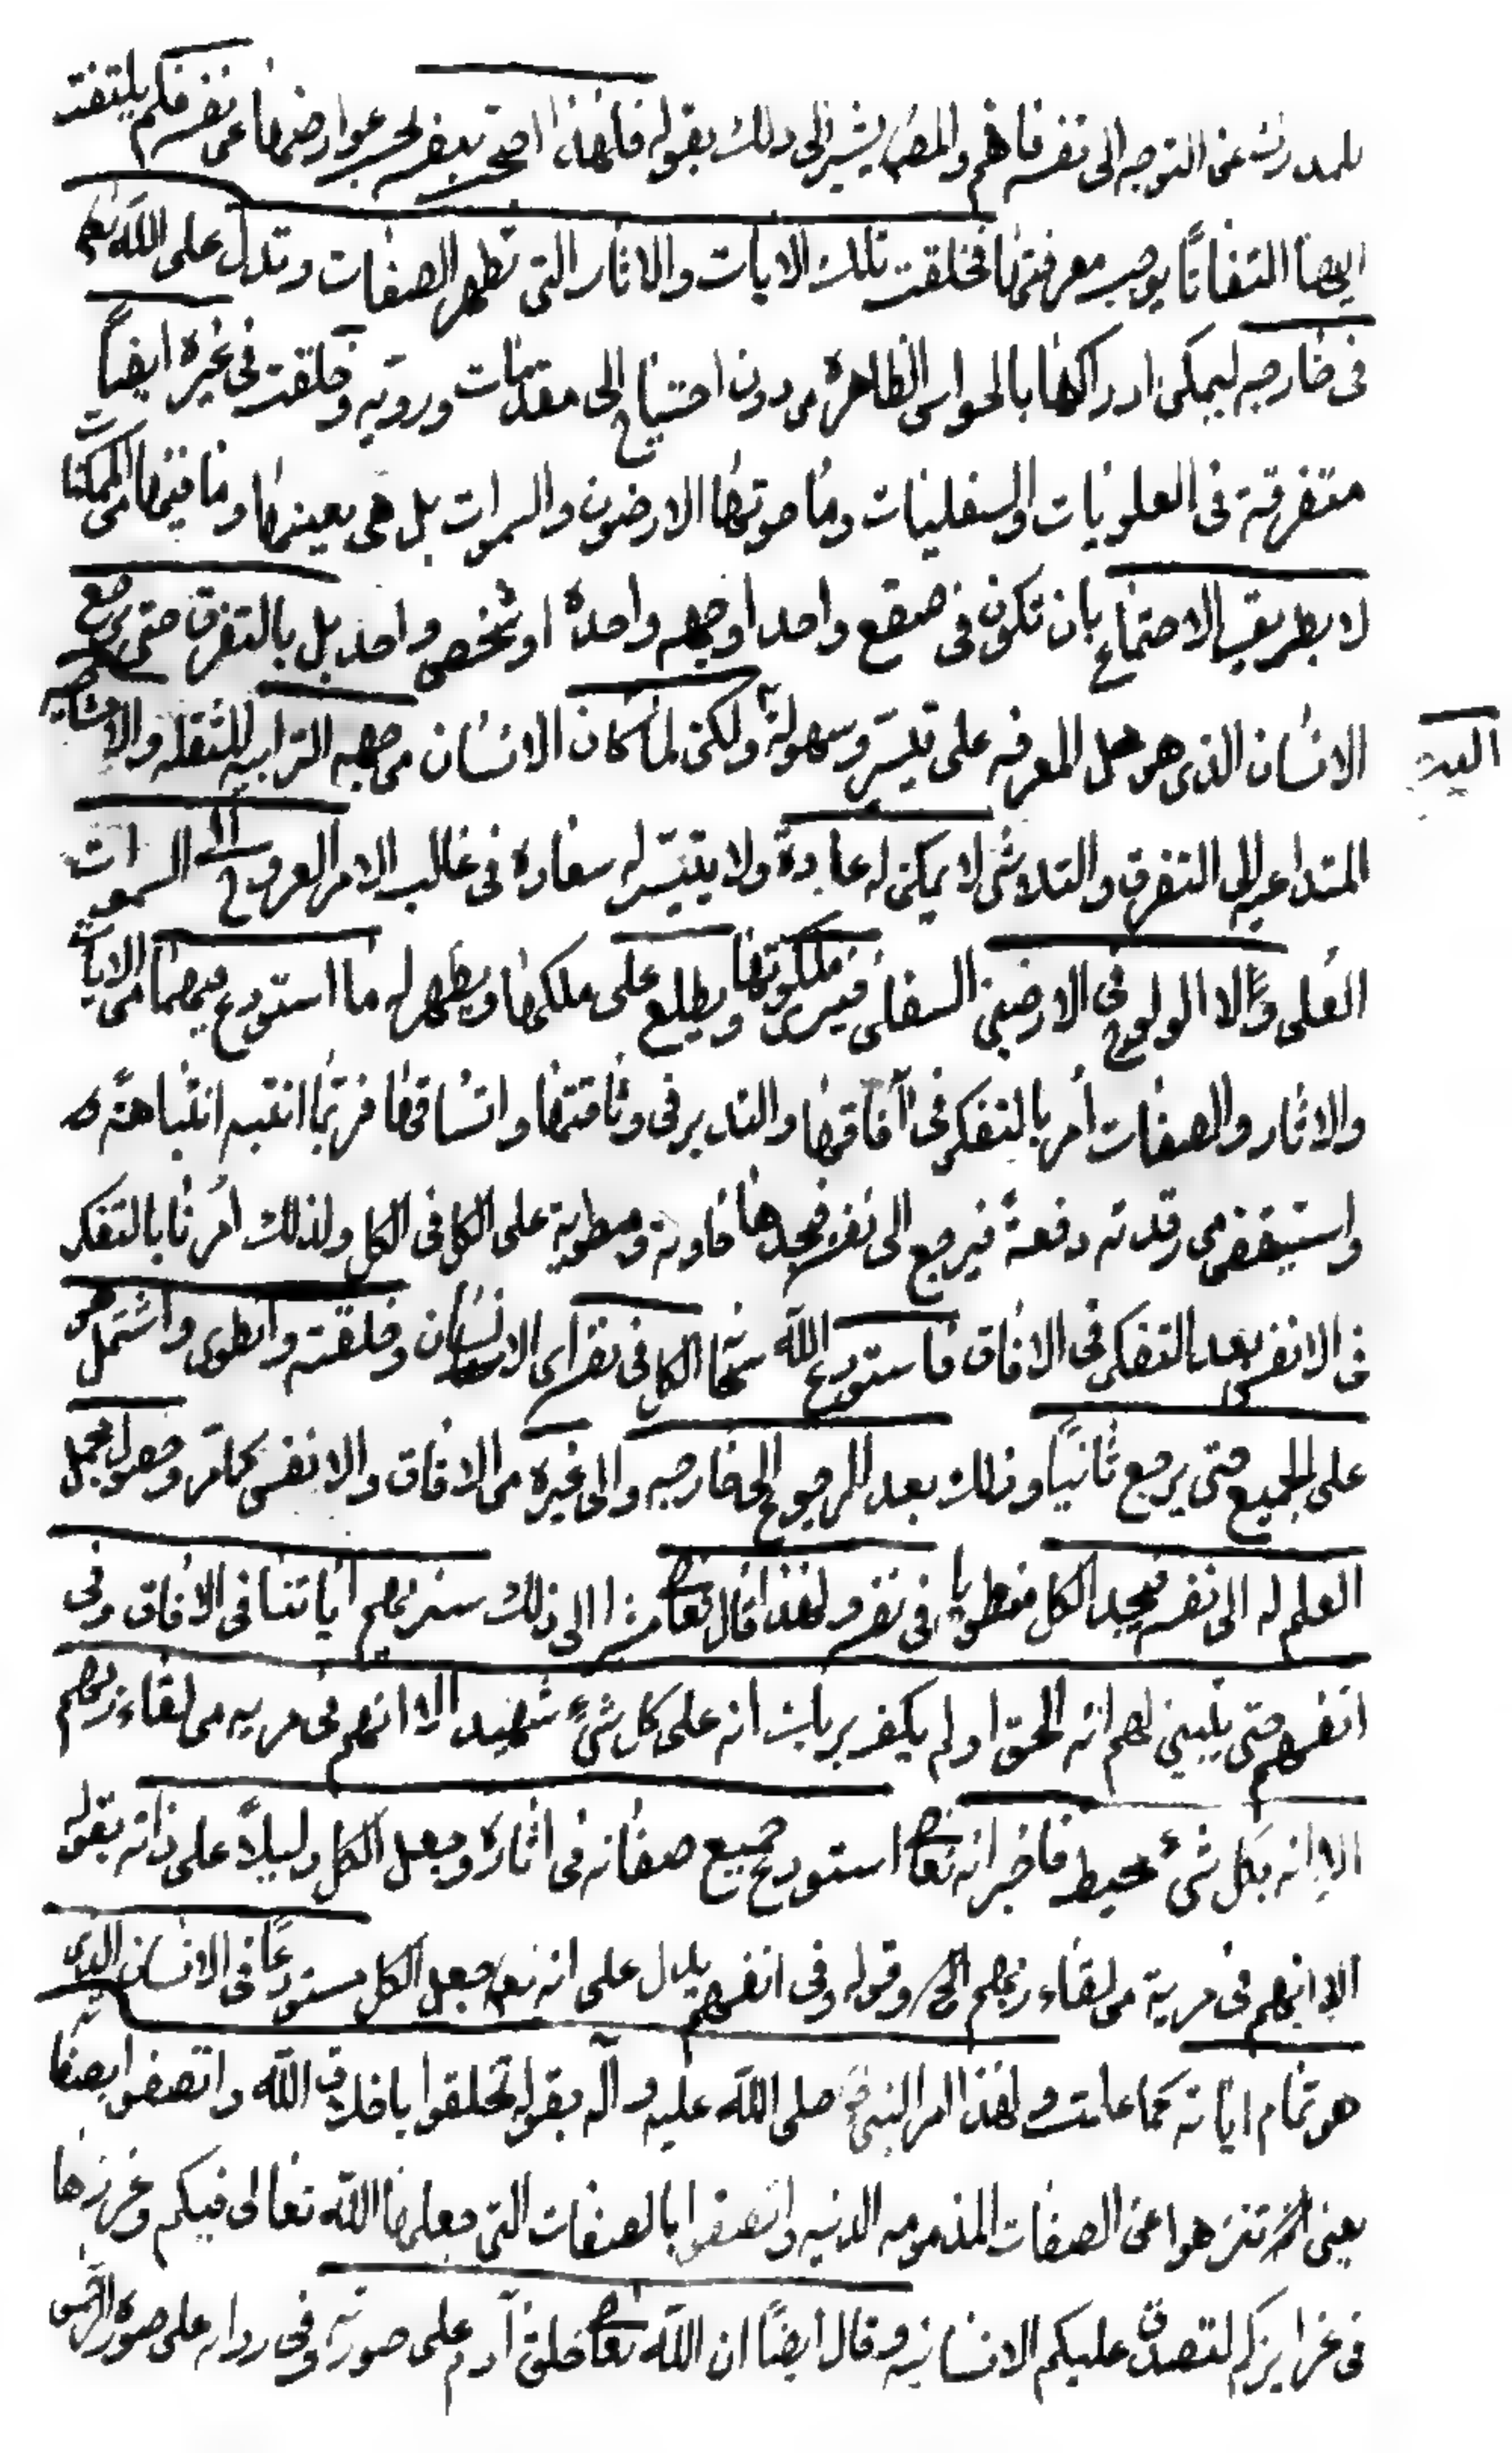 للمدركة عن التوجه الى نفسه فافهم والمص يشير الى ذلك بقوله فلهذا احتجب بعض لحسه عوارضها عن نفسه فلم يلتفت
اليها التفاتًا يوجب معرفتها فخلقت تلك الايات والاثار التي تظهر الصفات وتدل على الله تعالى
في خارجه ليمكن ادراكها بالحواس الظاهرة من دون احتياج الى مقدمات وروية وخلقت في غيره ايضاً
متفرقة في العلويات والسفليات وما حوتها الارضون والسموات بل هي بعينها وما فيها من الممكنات
لا بطريق الاجتماع بان تكون في صقع واحد او جهه واحدة او شخص واحد بل بالتفرق حتى يرجع
اليه
الانسان الذي هو محل المعرفه على تيسّر وسهولة ولكن لما كان الانسان من جهه الترابيه الثقله والا
المتداعيه الى التفرق والتلاشي لا يمكن له عادة ولا يتيسّر له سعاده في غالب الامر العروج الى السموات
العُلى وَالا الولوج في الارضين السفلى فيرى ملكوتها ويطلع على ملكها ويظهر له ما استودع فيهما من الايات
والاثار والصفات أمر بالتفكر في آفاقها والتدبر في وثاقتها واتساقها فربّما انتبه انتباهة
واستيقظ من رقدته دفعةً فيرجع الى نفسه فيجدها حاوية ومطوية على الكل في الكل ولذلك أمرنا بالتفكر
في الانفس بعد التفكر في الافاق فاستودع الله سبحانه الكل في نفس اي الانسان وخلقته وانطوى واشتمل هو
على الجميع حتى يرجع ثانياً وذلك بعد الرجوع الى خارجه والى غيره من الافاق والانفس كما مر وحصول مجمل
العلم له الى نفسه فيجد الكل منطويا في نفسه ولهذا قال تعالى مشيرا الى ذلك سنريهم اياتنا في الافاق وفي
انفسهم حتى يتبين لهم انه الحق اولم يكف بربك انه على كل شيء شهيد الا انهم في مريه من لقاء ربهم
الا انه بكل شيء محيط فاخبر انه تعالى استودع جميع صفاته في اثاره وجعل الكل دليلاً على ذاته بقوله
الا انهم في مرية من لقاء ربهم الخ وقوله وفي انفسهم يدل على انه تعالى جعل الكل مستودعاً في الانسان الذي
هو تمام اياته كما علمت ولهذا امر النبي صلى الله عليه وآله بقوله تخلقوا باخلاق الله واتصفوا بصفاته
يعني تنزهوا عن الصفات المذمومه الدنيه واتصفوا بالصفات التي جعلها الله تعالى فيكم وغرزها
في غرايزكم لتصدق عليكم الانسانيه وقال ايضاً ان الله تعالى خلق آدم على صورته وفي رواية على صورة الرحمن